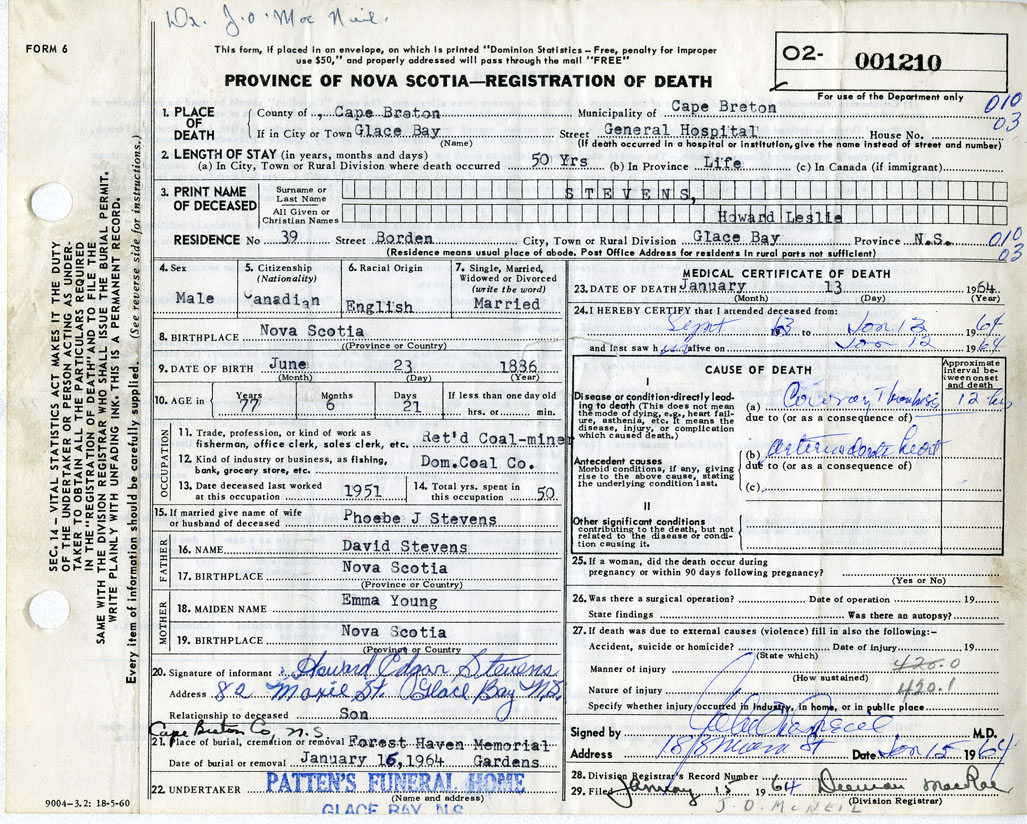 Dr. J.O. Mac Neil.
FORM 6
This form, if placed in an envelope, on which is printed "Dominion Statistics – Free, penalty for improper
use $50," and properly addressed will pass through the mail "FREE"
PROVINCE OF NOVA SCOTIA—REGISTRATION OF DEATH
O2- 001210
For use of the Department only
010
03
1. PLACE OF DEATH
County of Cape Breton Municipality of Cape Breton
If in City or Town Glace Bay Street General Hospital House No.
(Name) (If death occurred in a hospital or institution, give the name instead of street and number)
2. LENGTH OF STAY (in years, months and days)
(a) In City, Town or Rural Division where death occurred 50 Yrs (b) In Province Life (c) In Canada (if immigrant)
3. PRINT NAME OF DECEASED
Surname or Last Name STEVENS,
All Given or Christian Names Howard Leslie
RESIDENCE No 39 Street Borden City, Town or Rural Division Glace Bay Province N.S.
010
03
(Residence means usual place of abode. Post Office Address for residents in rural parts not sufficient)
4. Sex Male
5. Citizenship (Nationality) Canadian
6. Racial Origin English
7. Single, Married, Widowed or Divorced (write the word) Married
8. BIRTHPLACE Nova Scotia
((Province or Country)
9. DATE OF BIRTH June 23 1886
(Month) (Day) (Year)
10. AGE in Years 77 Months 6 Days 21 If less than one day old hrs. or min.
OCCUPATION
11. Trade, profession, or kind of work as fisherman, office clerk, sales clerk, etc. Ret'd Coal-miner
12. Kind of industry or business, as fishing, bank, grocery store, etc. Dom.Coal Co.
13. Date deceased last worked at this occupation 1951
14. Total yrs. spent in this occupation 50
15. If married give name of wife or husband of deceased Phoebe J Stevens
FATHER
16. NAME David Stevens
17. BIRTHPLACE Nova Scotia
(Province or Country)
MOTHER
18. MAIDEN NAME Emma Young
19. BIRTHPLACE Nova Scotia
(Province or Country
20. Signature of informant Howard Edgar Stevens
Address 82 Maxie St. Glace Bay N.S.
Relationship to deceased Son
Cape Breton Co, N.S.
21. Place of burial, cremation or removal Forest Haven Memorial
Date of burial or removal January 15, 1964 Gardens
22. UNDERTAKER PATTEN'S FUNERAL HOME
(Name and address)
GLACE BAY, N.S.
9004-3.2: 18-5-60
MEDICAL CERTIFICATE OF DEATH
23. DATE OF DEATH January 13 1964
(Month) (Day) (Year)
24. I HEREBY CERTIFY that I attended deceased from:
Sept 1963 to Jan 13 1964
and last saw him alive on Jan 12 1964
CAUSE OF DEATH
Approximate interval between onset and death
I
Disease or condition directly leading to death (This does not mean the mode of dying, e.g., heart failure, asthenia, etc. It means the disease, injury, or complication which caused death.)
(a) Coronary Thrombosis 12 hrs
due to (or as a consequence of)
Antecedent causes
Morbid conditions, if any, giving rise to the above cause, stating the underlying condition last.
(b) heart
due to (or as a consequence of)
(c)
II
Other significant conditions
contributing to the death, but not related to the disease or condition causing it.
25. If a woman, did the death occur during pregnancy or within 90 days following pregnancy?
(Yes or No)
26. Was there a surgical operation? Date of operation 19
State findings Was there an autopsy?
27. If death was due to external causes (violence) fill in also the following:–
Accident, suicide or homicide? Date of injury 19
(State which)
Manner of injury 420.0
(How sustained)
Nature of injury 420.1
Specify whether injury occurred in industry, in home, or in public place
Signed by M.D.
Address Main St Date Jan 15 1964
28. Division Registrar's Record Number
29. Filed January 15 1964 MacRae
(Division Registrar)
J.O. McNEIL
SEC. 14 – VITAL STATISTICS ACT MAKES IT THE DUTY
OF THE UNDERTAKER OR PERSON ACTING AS UNDER-
TAKER TO OBTAIN ALL THE PARTICULARS REQUIRED
IN THE "REGISTRATION OF DEATH" AND TO FILE THE
SAME WITH THE DIVISION REGISTRAR WHO SHALL ISSUE THE BURIAL PERMIT.
WRITE PLAINLY WITH UNFADING INK. THIS IS A PERMANENT RECORD.
Every item of information should be carefully supplied. (See reverse side for instructions.)